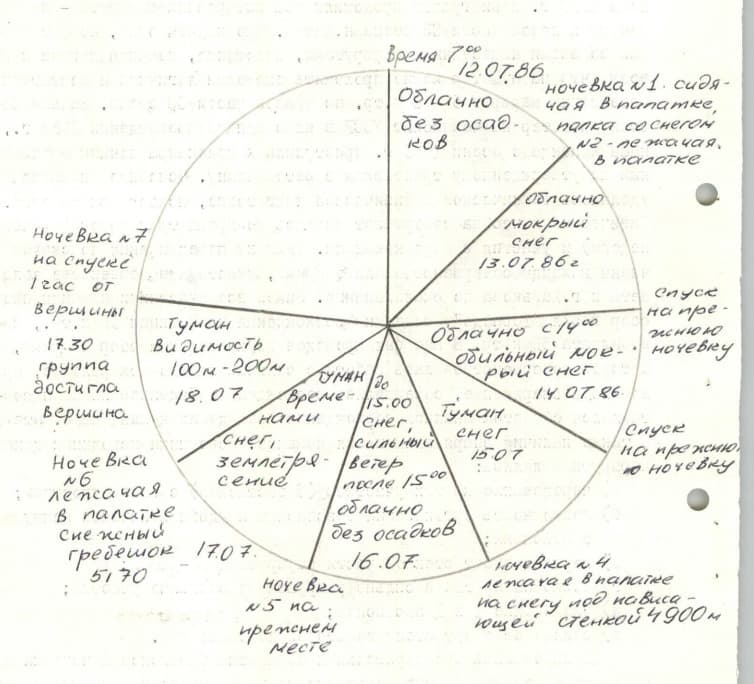 Время 7⁰⁰
12.07.86
Облачно
без осад-
ков
ночевка №1. сидя-
чая в палатке,
палка со снегом
№2 - лежачая.
в палатке
Облачно
мокрый
снег
13.07.86г
Спуск
на пре-
жнюю
ночевку
Облачно с 14⁰⁰
обильный мок-
рый снег
14.07.86
Спуск
на прежню-
ю ночевку
Туман
снег.
15.07
ночевка №4.
лежачае в палатке
на снегу под нависа-
ющей стенкой 4900м
до
15.00
снег,
сильный
ветер
после 15⁰⁰
облачно
без осадков
16.07.
ночевка
№5 на
прежнем
месте
туман
Време-
нами
снег,
землетря-
сение
17.07.
Ночевка
№6
лежачая
в палатке
снежный
гребешок
5170
Туман
Видимость
100м-200м
18.07
Ночевка №7
на спуске
1 час от
вершины
17.30
группа
достигла
вершина